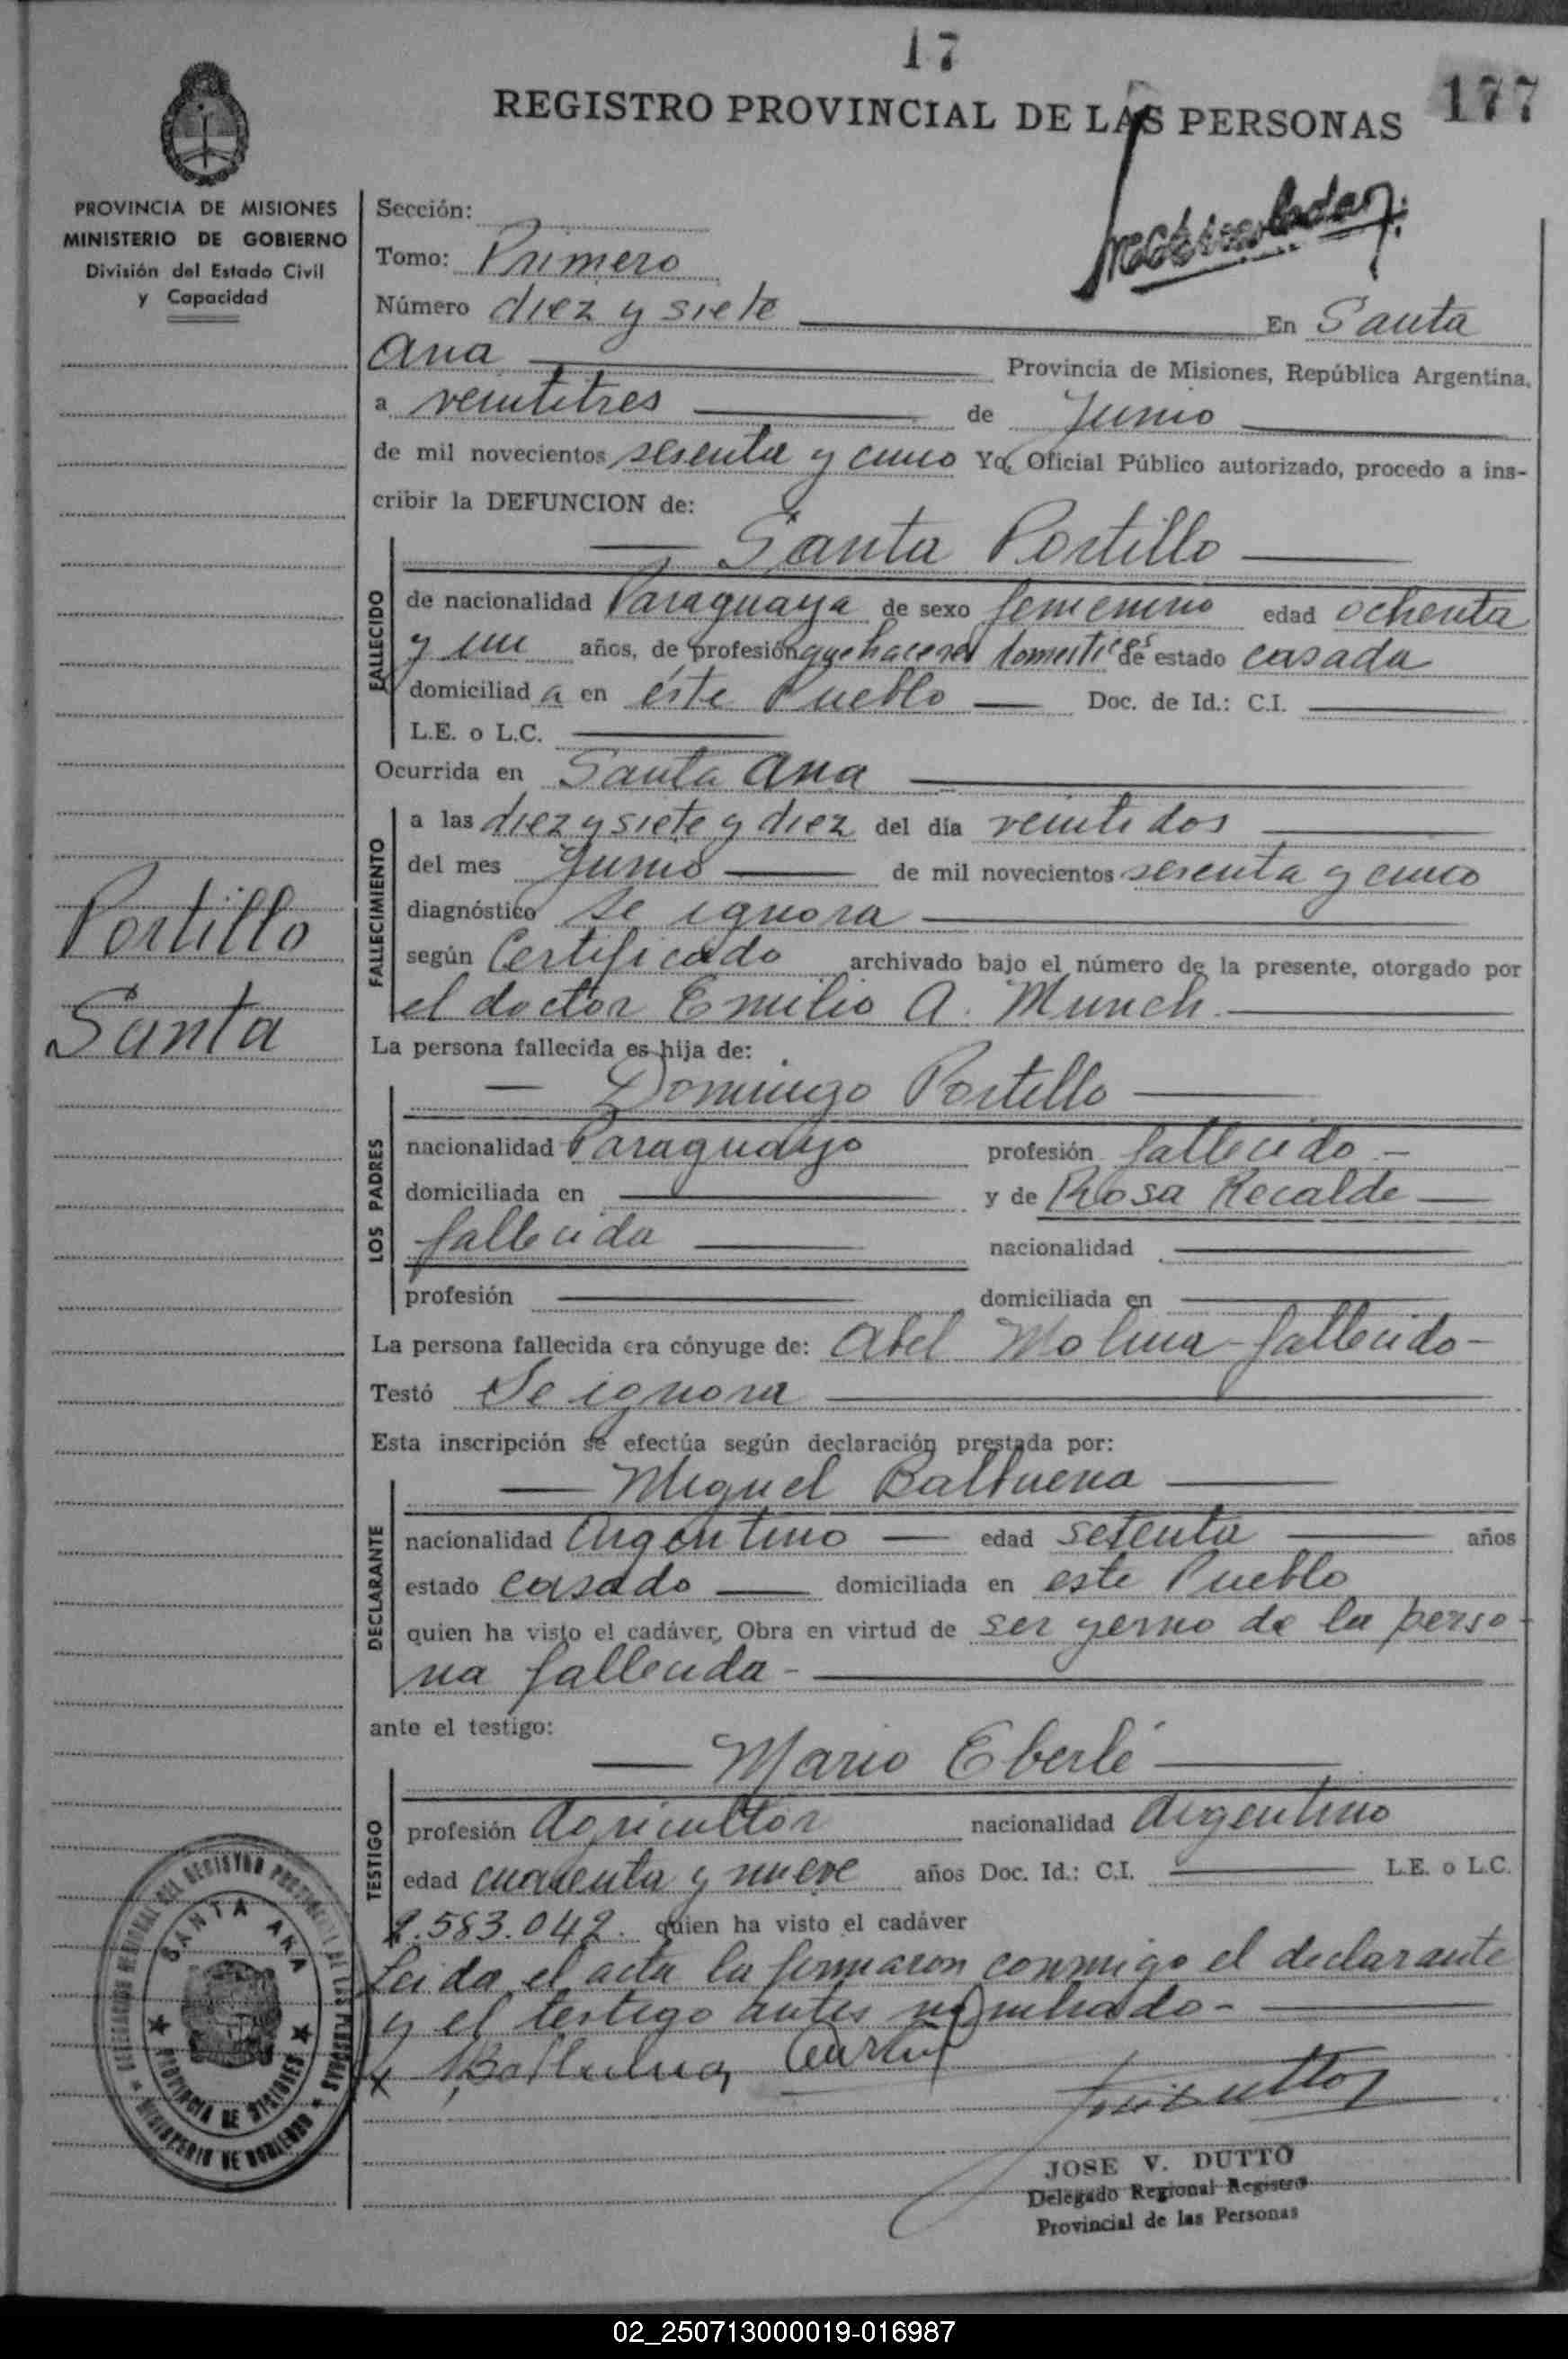 17
177
REGISTRO PROVINCIAL DE LAS PERSONAS
PROVINCIA DE MISIONES
MINISTERIO DE GOBIERNO
División del Estado Civil
y Capacidad
Sección:
Tomo: Primero
Número diez y siete En Santa
Ana Provincia de Misiones, República Argentina,
a veintitres de Junio
de mil novecientos sesenta y cinco Yo, Oficial Público autorizado, procedo a ins-
cribir la DEFUNCION de:
Santa Portillo
FALLECIDO
de nacionalidad Paraguaya de sexo femenino edad ochenta
y un años, de profesión quehaceres domesticos de estado casada
domiciliad a en éste Pueblo Doc. de Id.: C.I.
L.E. o L.C.
Ocurrida en Santa Ana
FALLECIMIENTO
a las diez y siete y diez del día veintidos
del mes Junio de mil novecientos sesenta y cinco
diagnóstico se ignora
según Certificado archivado bajo el número de la presente, otorgado por
el doctor Emilio A. Munch.
Portillo
Santa
La persona fallecida es hija de:
Domingo Portillo
LOS PADRES
nacionalidad Paraguayo profesión fallecido -
domiciliada en y de Rosa Recalde
fallecida nacionalidad
profesión domiciliada en
La persona fallecida era cónyuge de: Abel Molina - fallecido -
Testó Se ignora
Esta inscripción se efectúa según declaración prestada por:
Miguel Balbuena
DECLARANTE
nacionalidad Argentino edad setenta años
estado casado domiciliada en este Pueblo
quien ha visto el cadáver, Obra en virtud de ser yerno de la perso-
na fallecida -
ante el testigo:
Mario Eberlé
TESTIGO
profesión Agricultor nacionalidad Argentino
edad cuarenta y nueve años Doc. Id.: C.I. L.E. o L.C.
2.583.042. quien ha visto el cadáver
Leida el acta la firmaron conmigo el declarante
y el testigo antes nombrado -
x Balbuena
JOSE V. DUTTO
Delegado Regional Registro
Provincial de las Personas
SANTA ANA
PROVINCIA DE MISIONES
DELEGACION REGIONAL DEL REGISTRO PROVINCIAL DE LAS PERSONAS
MINISTERIO DE GOBIERNO
02_250713000019-016987